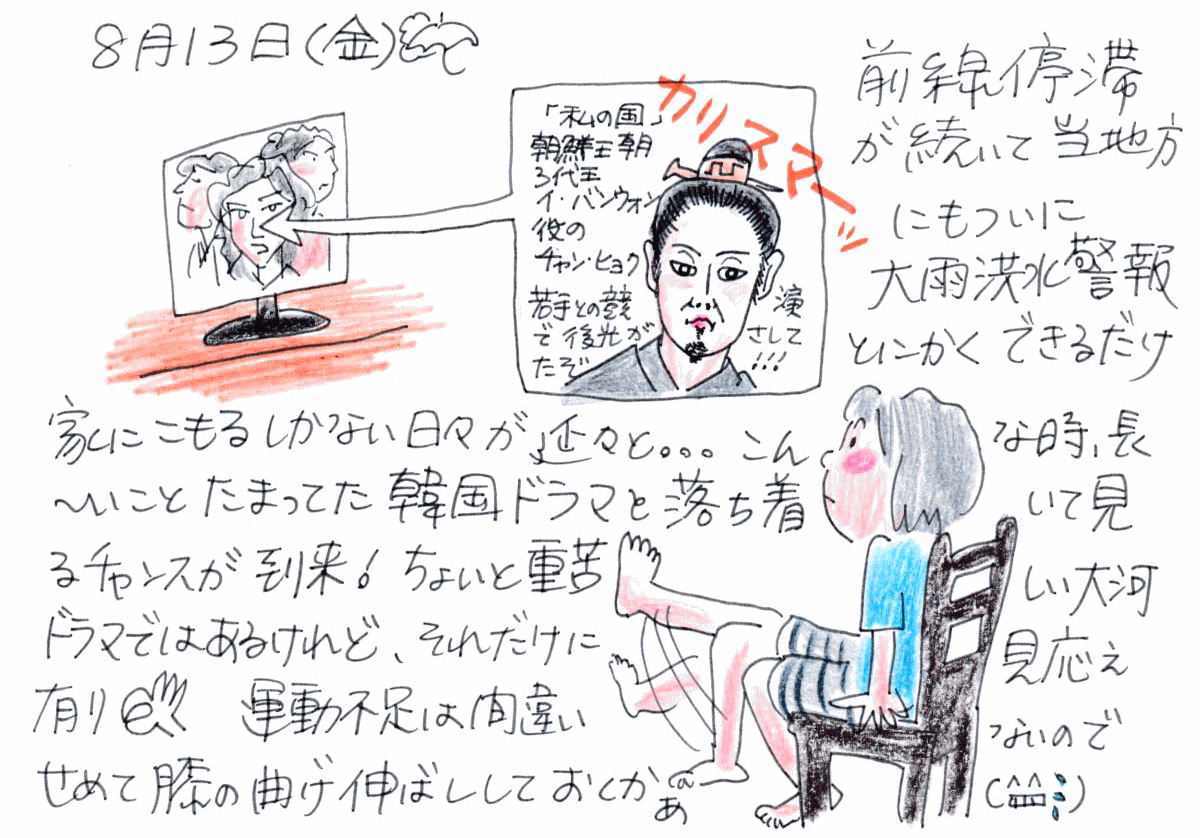 8月13日(金)
前線停滞
が続いて当地方
にもついに
大雨洪水警報
とにかくできるだけ
カリスマーッ
「私の国」
朝鮮王朝
3代王
イ・バンウォン
役の
チャン・ヒョク
若手との競演
で後光がさして
たぞ!!!
家にこもるしかない日々が延々と。。。こんな時、長
〜いことたまってた韓国ドラマを落ち着いて見
るチャンスが到来!ちょいと重苦しい大河
ドラマではあるけれど、それだけに見応え
有り 運動不足は間違いないので
せめて膝の曲げ伸ばししておくかぁあ(^^;)